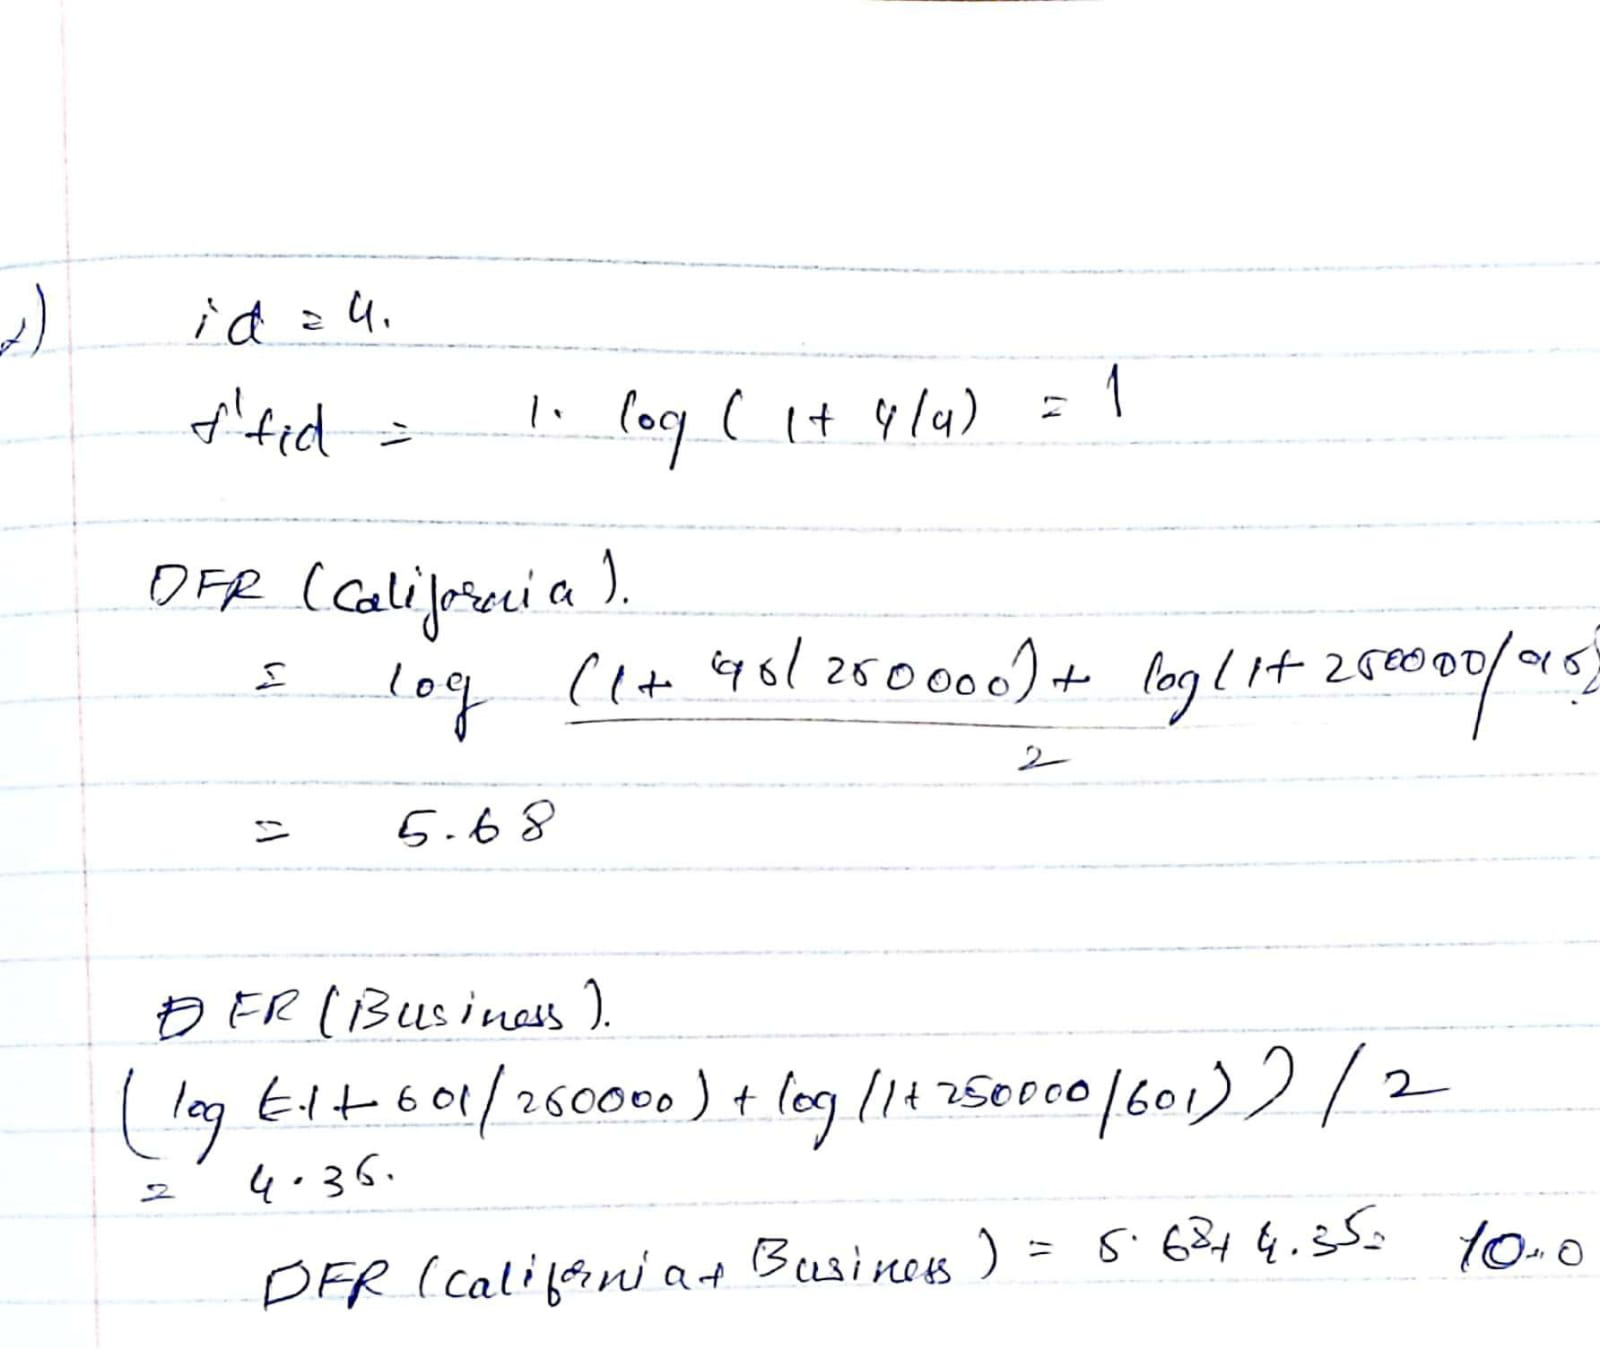 2) id = 4.
f'fid = 1. log ( 1+ 4/4) = 1
DFR (California).
= log (1+ 95/250000) + log(1+ 250000/95)
2
= 5.68
DFR (Business).
( log (1+ 601/250000) + log (1+ 250000/601)) / 2
= 4.35.
DFR (California + Business) = 5.68+ 4.35= 10.0